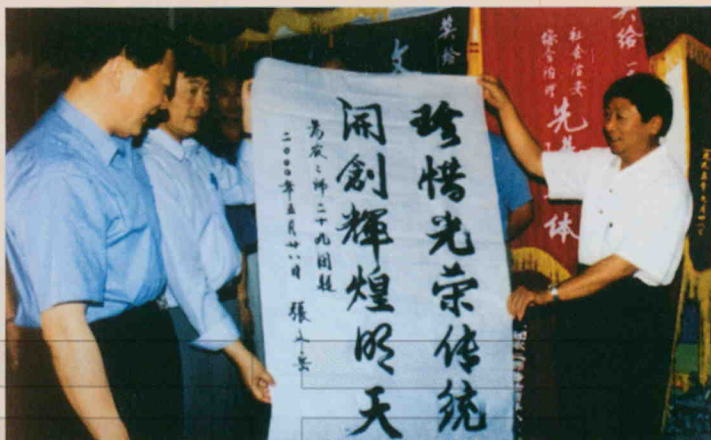 珍惜光荣传统
开創輝煌明天
为农二师二十九团题
二〇〇〇年五月廿八日 張文岳
奖给
文
奖给
社会治安
综合治理
先
体